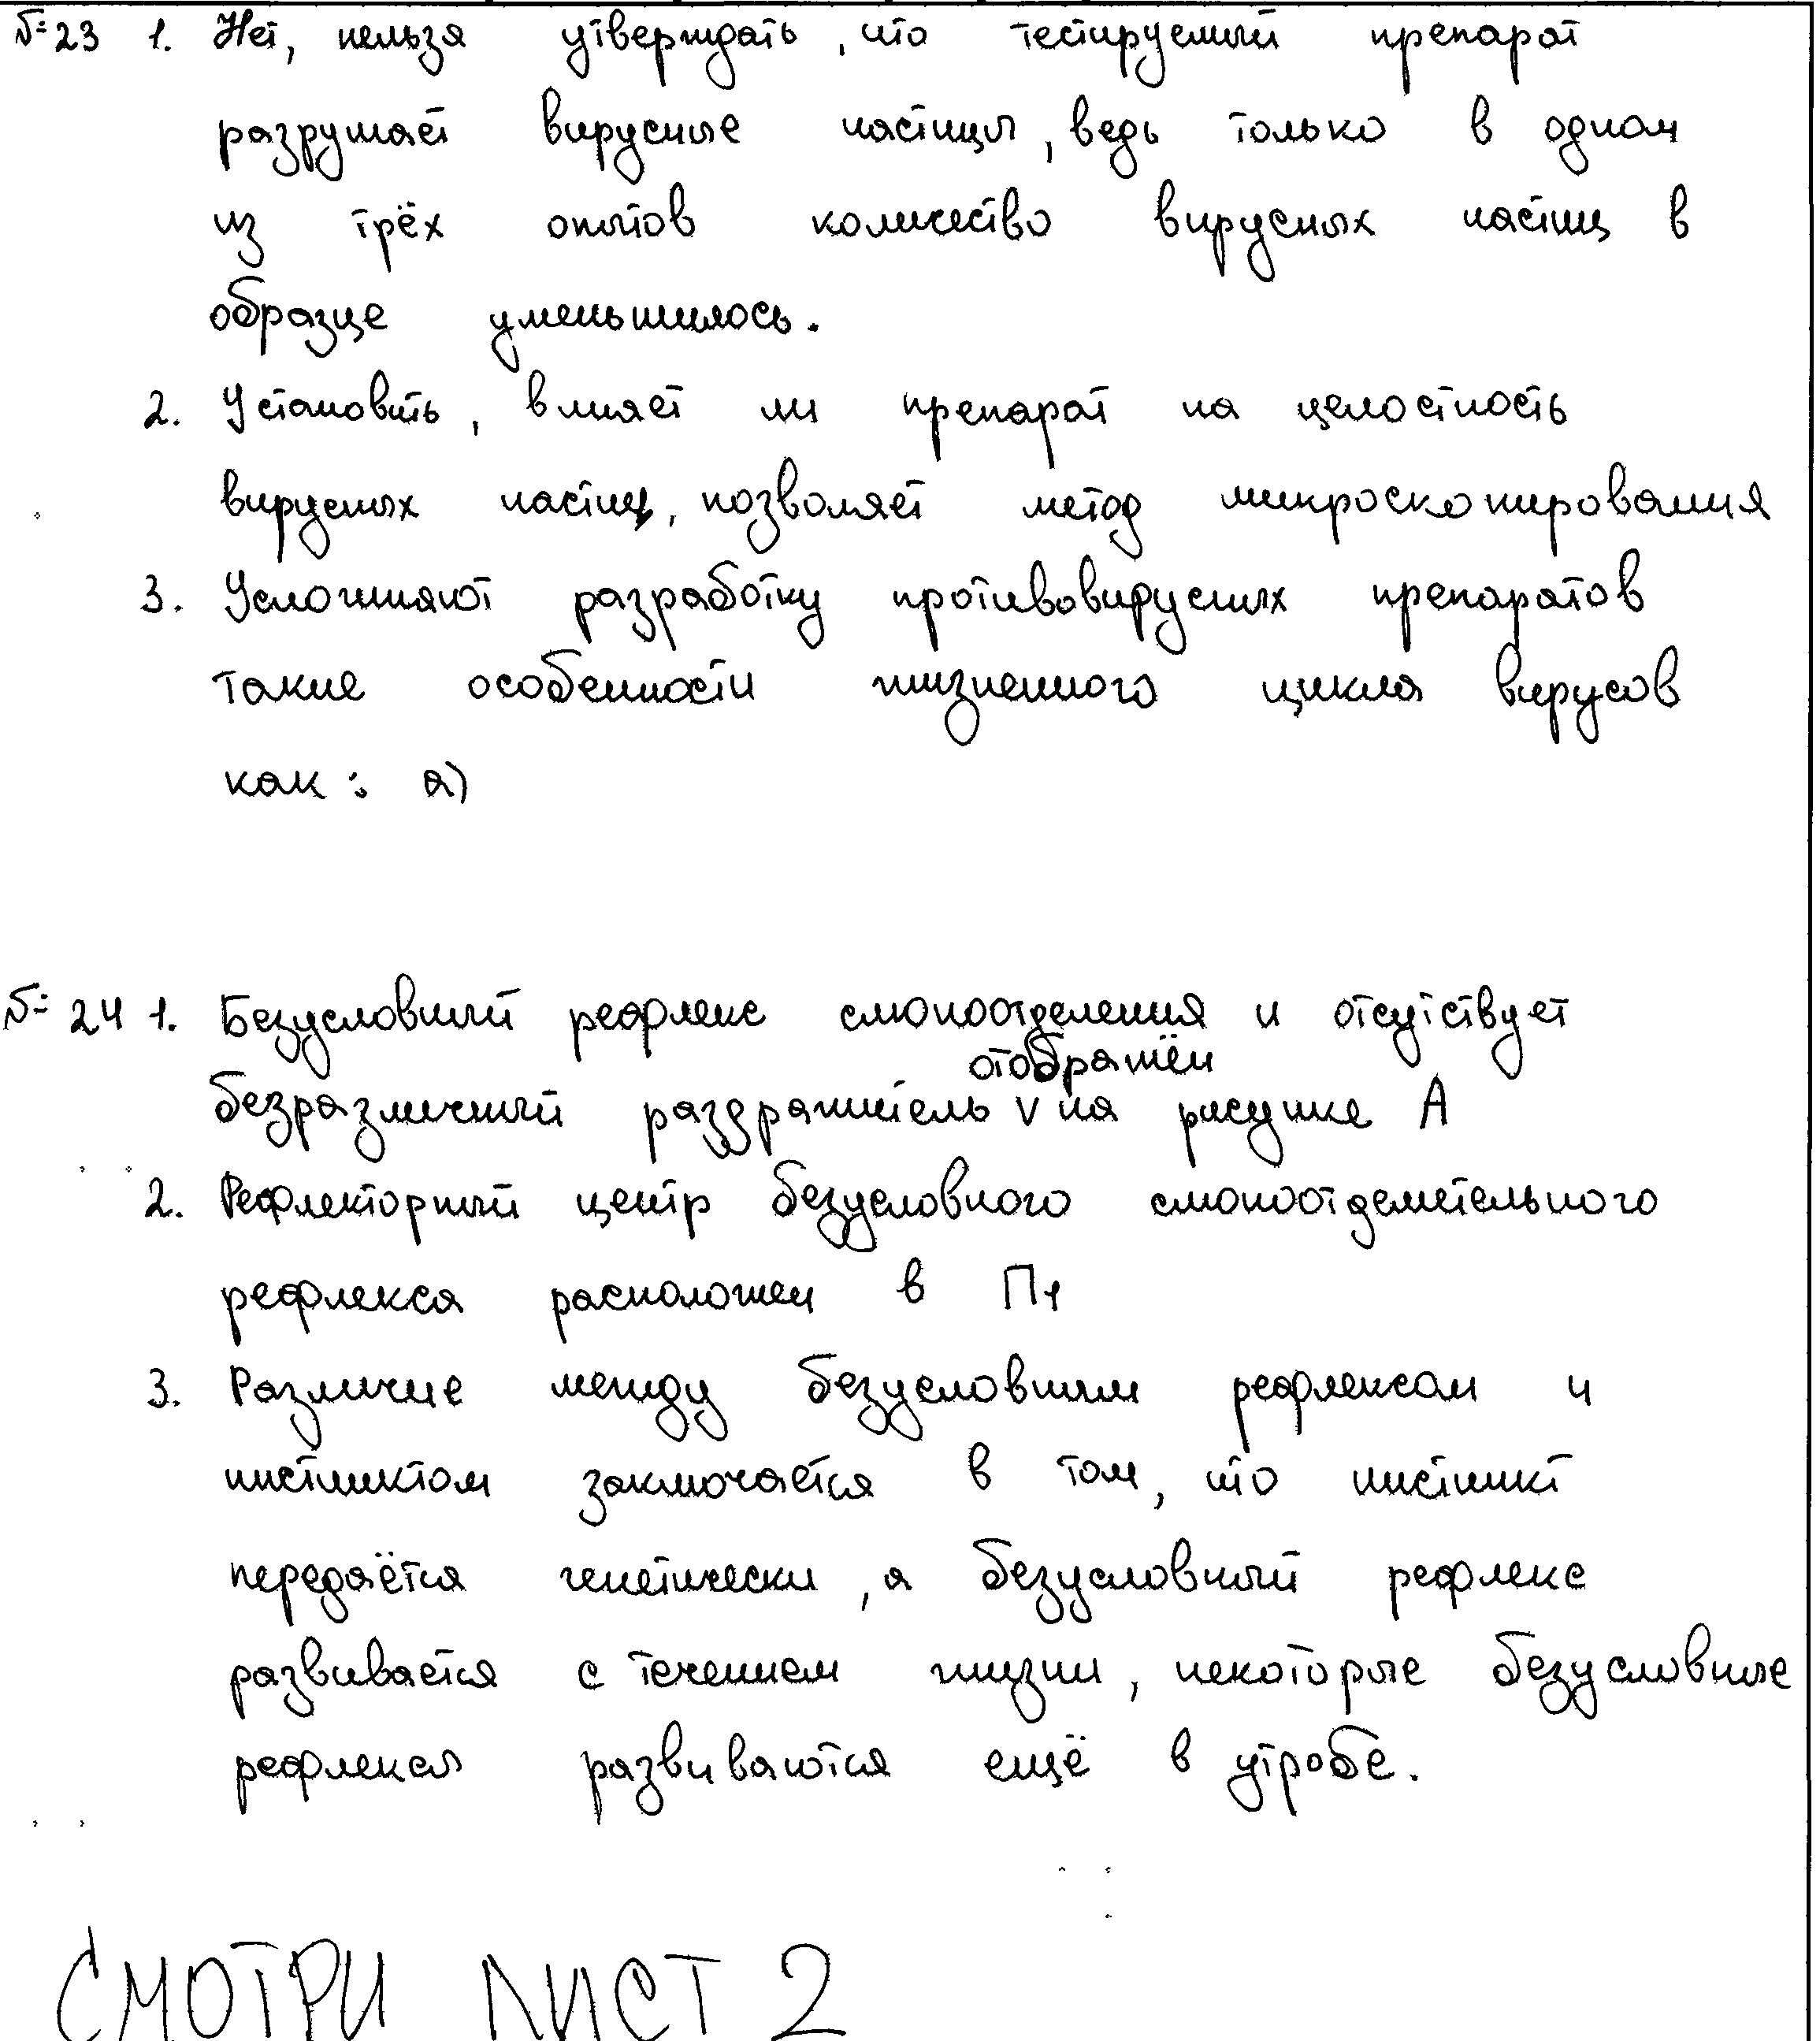 №23 1. Нет, нельзя утверждать, что тестируемый препарат
разрушает вирусные частицы, ведь только в одном
из трёх опытов количество вирусных частиц в
образце уменьшилось.
2. Установить, влияет ли препарат на целостность
вирусных частиц, позволяет метод микроскопирования
3. Усложняют разработку противовирусных препаратов
такие особенности жизненного цикла вирусов
как: а)
№ 24 1. Безусловный рефлекс слюноотделения и отсутствует
отображён
безразличный раздражитель V на рисунке А
2. Рефлекторный центр безусловного слюноотделительного
рефлекса расположен в П1
3. Различие между безусловным рефлексом и
инстинктом заключается в том, что инстинкт
передаётся генетически, а безусловный рефлекс
развивается с течением жизни, некоторые безусловные
рефлексы развиваются ещё в утробе.
СМОТРИ ЛИСТ 2